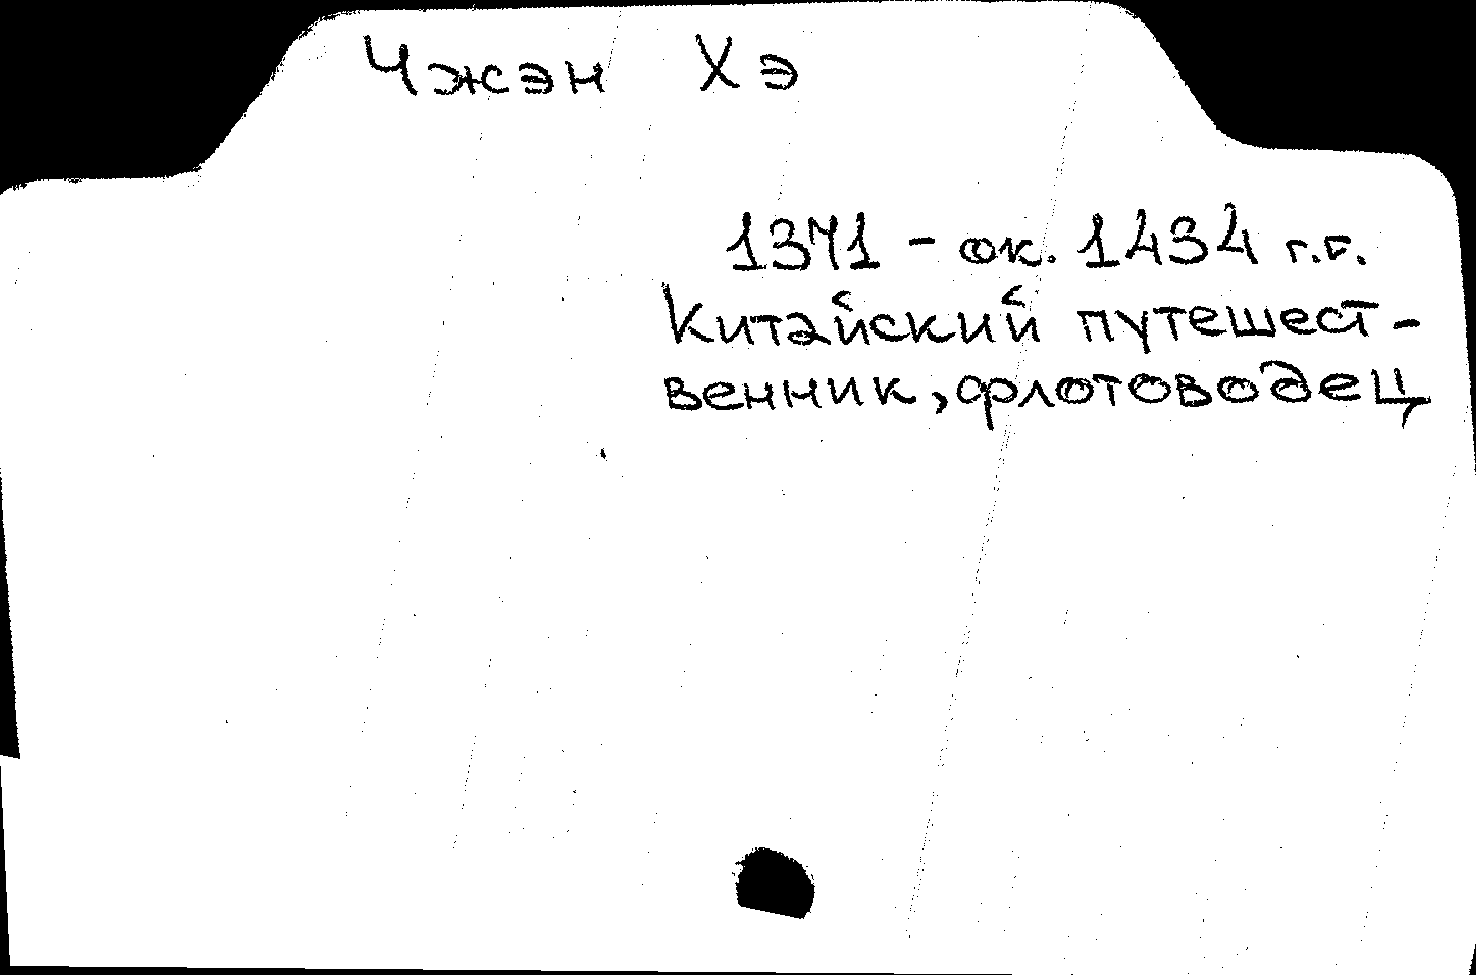 Чжэн Хэ
1371 - ок. 1434 г.г.
Китайский путешест-
венник, флотоводец